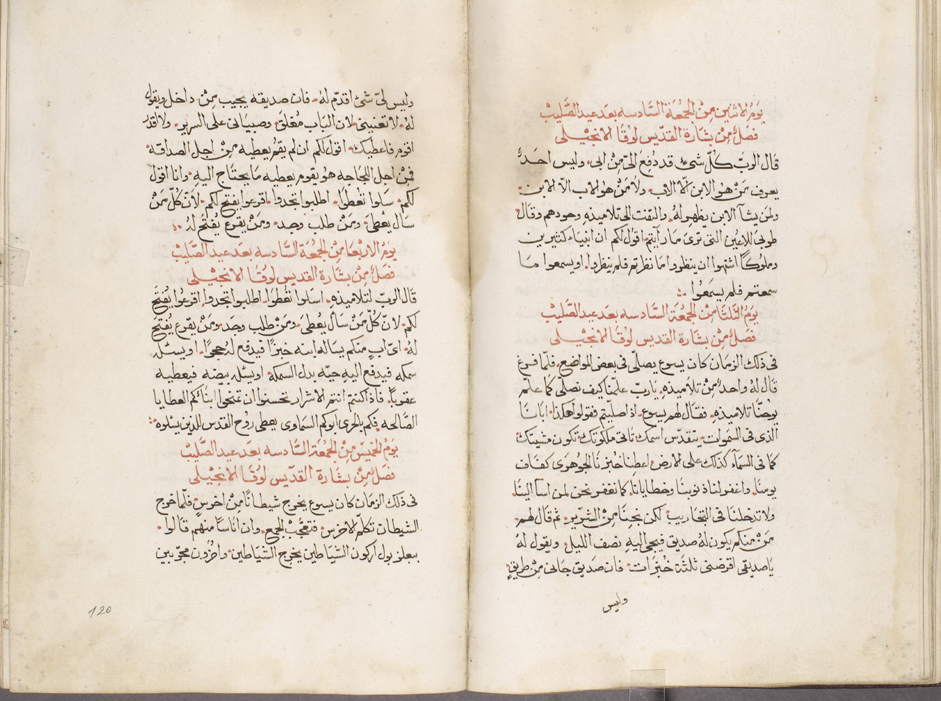 يوم الاثنين من الجمعة السادسه بعد عيد الصّليب
فصل من بشارة القدّيس لوقا الانجيلى
قال الربّ كلّ شى قد دفع الىّ من ابى وليس احد
يعرف من هو الابن الا الاب ولا من هو الاب الا الابن
ولمن يشا الابن يظهر له والتفت الى تلاميذه وحدهم وقال
طوبى للاعين التى ترى ما رايتم اقول لكم ان انبياء كثيرين
وملوكاً اشتهوا ان ينظروا ما نظرتم فلم ينظروا او يسمعوا ما
سمعتم فلم يسمعوا
يوم الثلثا من الجمعة السادسه بعد عيد الصّليب
فصل من بشارة القديس لوقا الانجيلى
فى ذلك الزمان كان يسوع يصلى فى بعض المواضع فلمّا فرغ
قال له واحد من تلاميذه يا ربّ علمنا كيف نصلى كما علم
يوحنّا تلاميذه فقال لهم يسوع اذ صليتم فقولوا هكذا ابانا
الذى فى السموات يتقدّس اسمك تاتى ملكوتك تكون مشيتك
كما فى السمآء كذلك على الارض اعطنا خبزنا الجوهرى كفاف
يومنا واغفر لنا ذنوبنا وخطايانا كما نغفر نحن لمن اسآ الينا
ولا تدخلنا فى التجاريب لكن نجينا من الشرير ثم قال لهم
من منكم يكون له صديق فيجى اليه نصف الليل ويقول له
يا صديقى اقرضنى ثلثة خبزات فان صديق جانى من طريق
وليس
وليس لىّ شئ اقدّم له فان صديقه يجيب من داخل ويقول
له لا تعنينى لان الباب مغلق وصبيانى على السرير ولا اقدر
اقوم فاعطيك اقول لكم ان لم يقم يعطيه من اجل الصداقه
فمن اجل اللجاجه هو يقوم يعطيه ما يحتاج اليه وانا اقول
لكم سلوا تعطوا اطلبوا تجدوا اقرعوا يفتح لكم لانّ كلّ من
سال يعطى ومن طلب وجد ومن يقرع يفتح له
يوم الاربعا من الجمعة السّادسه بعد عيد الصّليب
فصل من بشارة القديس لوقا الانجيلى
قال الربّ لتلاميذه اسلوا تعطوا اطلبوا تجدوا اقرعوا يفتح
لكم لانّ كلّ من سال يعطى ومن طلب وجد ومن يقرع يفتح
له اىّ اب منكم يساله ابنه خبزاً فيدفع له حجراً او يسئله
سمكه فيدفع اليه حيّه بدل السمكه او يسئله بيضه فيعطيه
عقرباً فاذ اكنتم انتم الاشرار تحسنوا ان تمنحوا ابنائكم العطايا
الصالحه فكم بالحرى ابوكم السماوى يعطى روح القدس للذين يسئلوه
يوم الخميس من الجمعة السّادسه بعد عيد الصّليب
فصل من بشارة القدّيس لوقا الانجيلى
فى ذلك الزمان كان يسوع يخرج شيطاناً من اخرس فلمّا خرج
الشيطان تكلم الاخرس فتعجّب الجمع وان اناساً منهم قالوا
ببعلزبول اركون الشياطين يخرج الشياطين واخرون مجرّبين
120